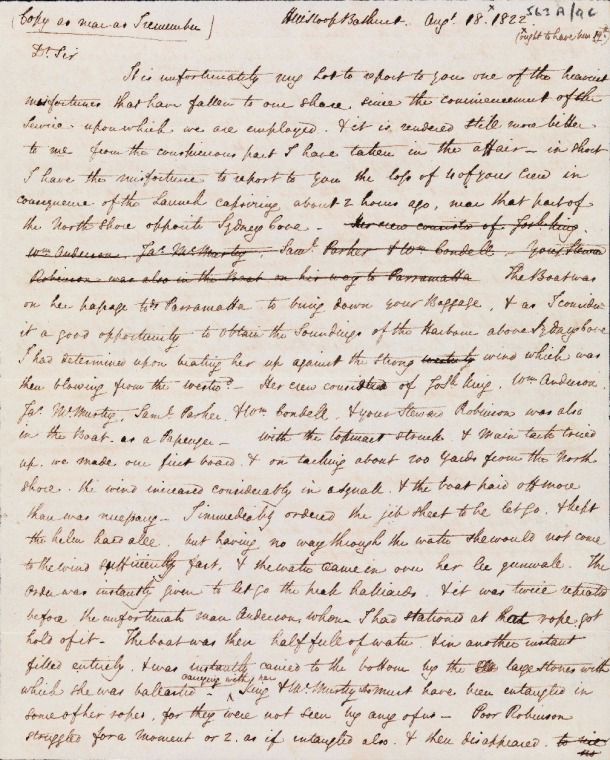 (Copy as near as I remember)
HM Sloop Bathurst. Augt. 18th 1822.
563A/9C
(ought to have been 19th.)
Dr. Sir
It is unfortunately my Lot to report to you one of the heaviest
misfortunes that have fallen to our share, since the commencement of the
Service upon which we are employed. & it is rendered still more bitter
to me from the conspicuous part I have taken in the affair – in short
I have the misfortune to report to you the loss of 4 of your Crew in
consequence of the Launch capsizing about 2 hours ago, near that part of
the North Shore opposite Sydney Cove – Her crew consists of Josh. King,
Wm. Anderson, Jas. McMurty, Saml. Parker & Wm. Condell – Your Steward
Robinson was also in the Boat on his way to Parramatta The Boat was
on her passage tods Parramatta to bring down your Baggage, & as I consider
it a good opportunity to obtain the Soundings of the Harbour above Sydney Cove
I had determined upon beating her up against the strong westerly wind which was
then blowing from the westd. – Her crew consisted of Josh. King, Wm. Anderson
Jas. McMurty, Saml. Parker, & Wm. Condell. & your Steward Robinson was also
in the Boat as a Passenger – with the topmast struck & Main tack triced
up. we made one first board & on tacking about 200 yards from the North
shore. the wind increased considerably in a squall & the boat paid off more
than was necessary – I immediately ordered the jib sheet to be let go. & kept
the helm hard alee. but having no way through the water she would not come
to the wind sufficiently fast. & the water came in over her lee gunwale. The
order was instantly given to let go the peak halliards & it was twice repeated
before the unfortunate man Anderson, whom I had stationed at that rope, got
hold of it – The boat was then half full of water & in another instant
filled entirely. & was instantly carried to the bottom by the large stones with
which she was ballasted carrying with her King & McMurty who must have been entangled in
some of her ropes, for they were not seen by any of us – Poor Robinson
struggled for a moment or 2. as if intangled also. & then disappeared.